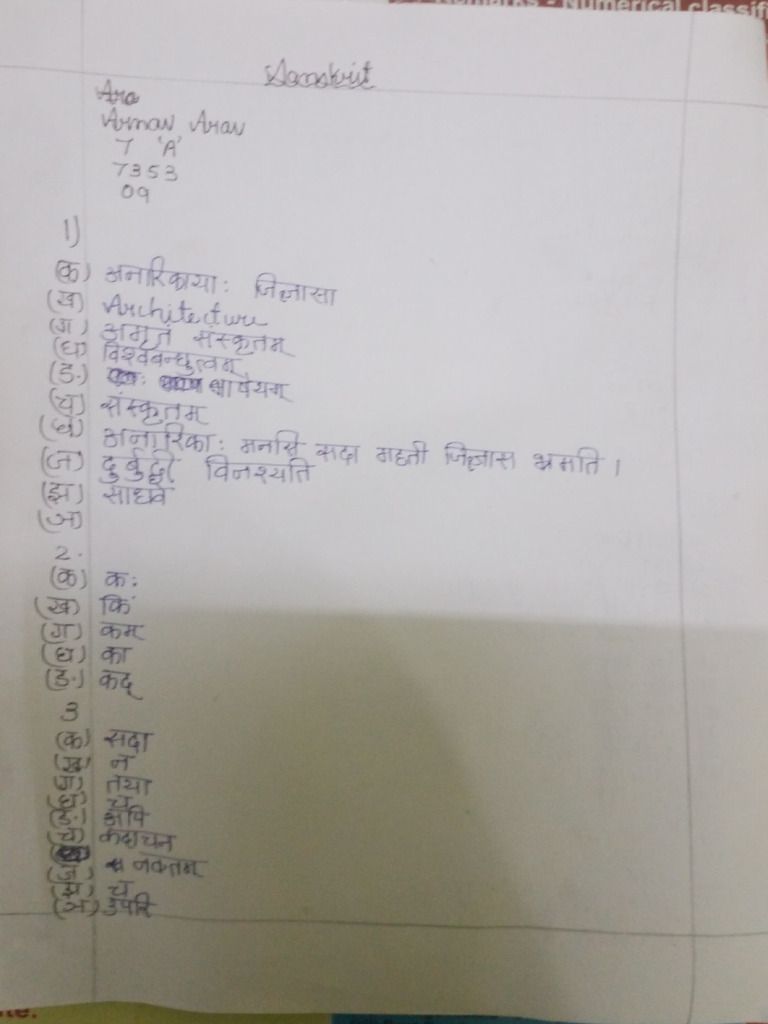 Remarks - Numerical classifi
Sanskrit
Ara
Arnav Arav
7 'A'
7353
09
1)
(क) अनारिकायाः जिज्ञासा
(ख) Architecture
(ग) अमृतं संस्कृतम्
(घ) विश्वबन्धुत्वम्
(ङ)
(च) संस्कृतम्
(छ) अनारिकाः मनसि कदा महती जिज्ञासा भ्रमति।
(ज) दुर्बुद्धी विनश्यति
(झ) साधवे
(ञ)
2.
(क) कः
(ख) किं
(ग) कम्
(घ) का
(ङ) कद्
3
(क) सदा
(ख) न
(ग) तथा
(घ) च
(ङ) अपि
(च) कदाचन
(ज) नक्तम्
(झ) च
(ञ) उपरि